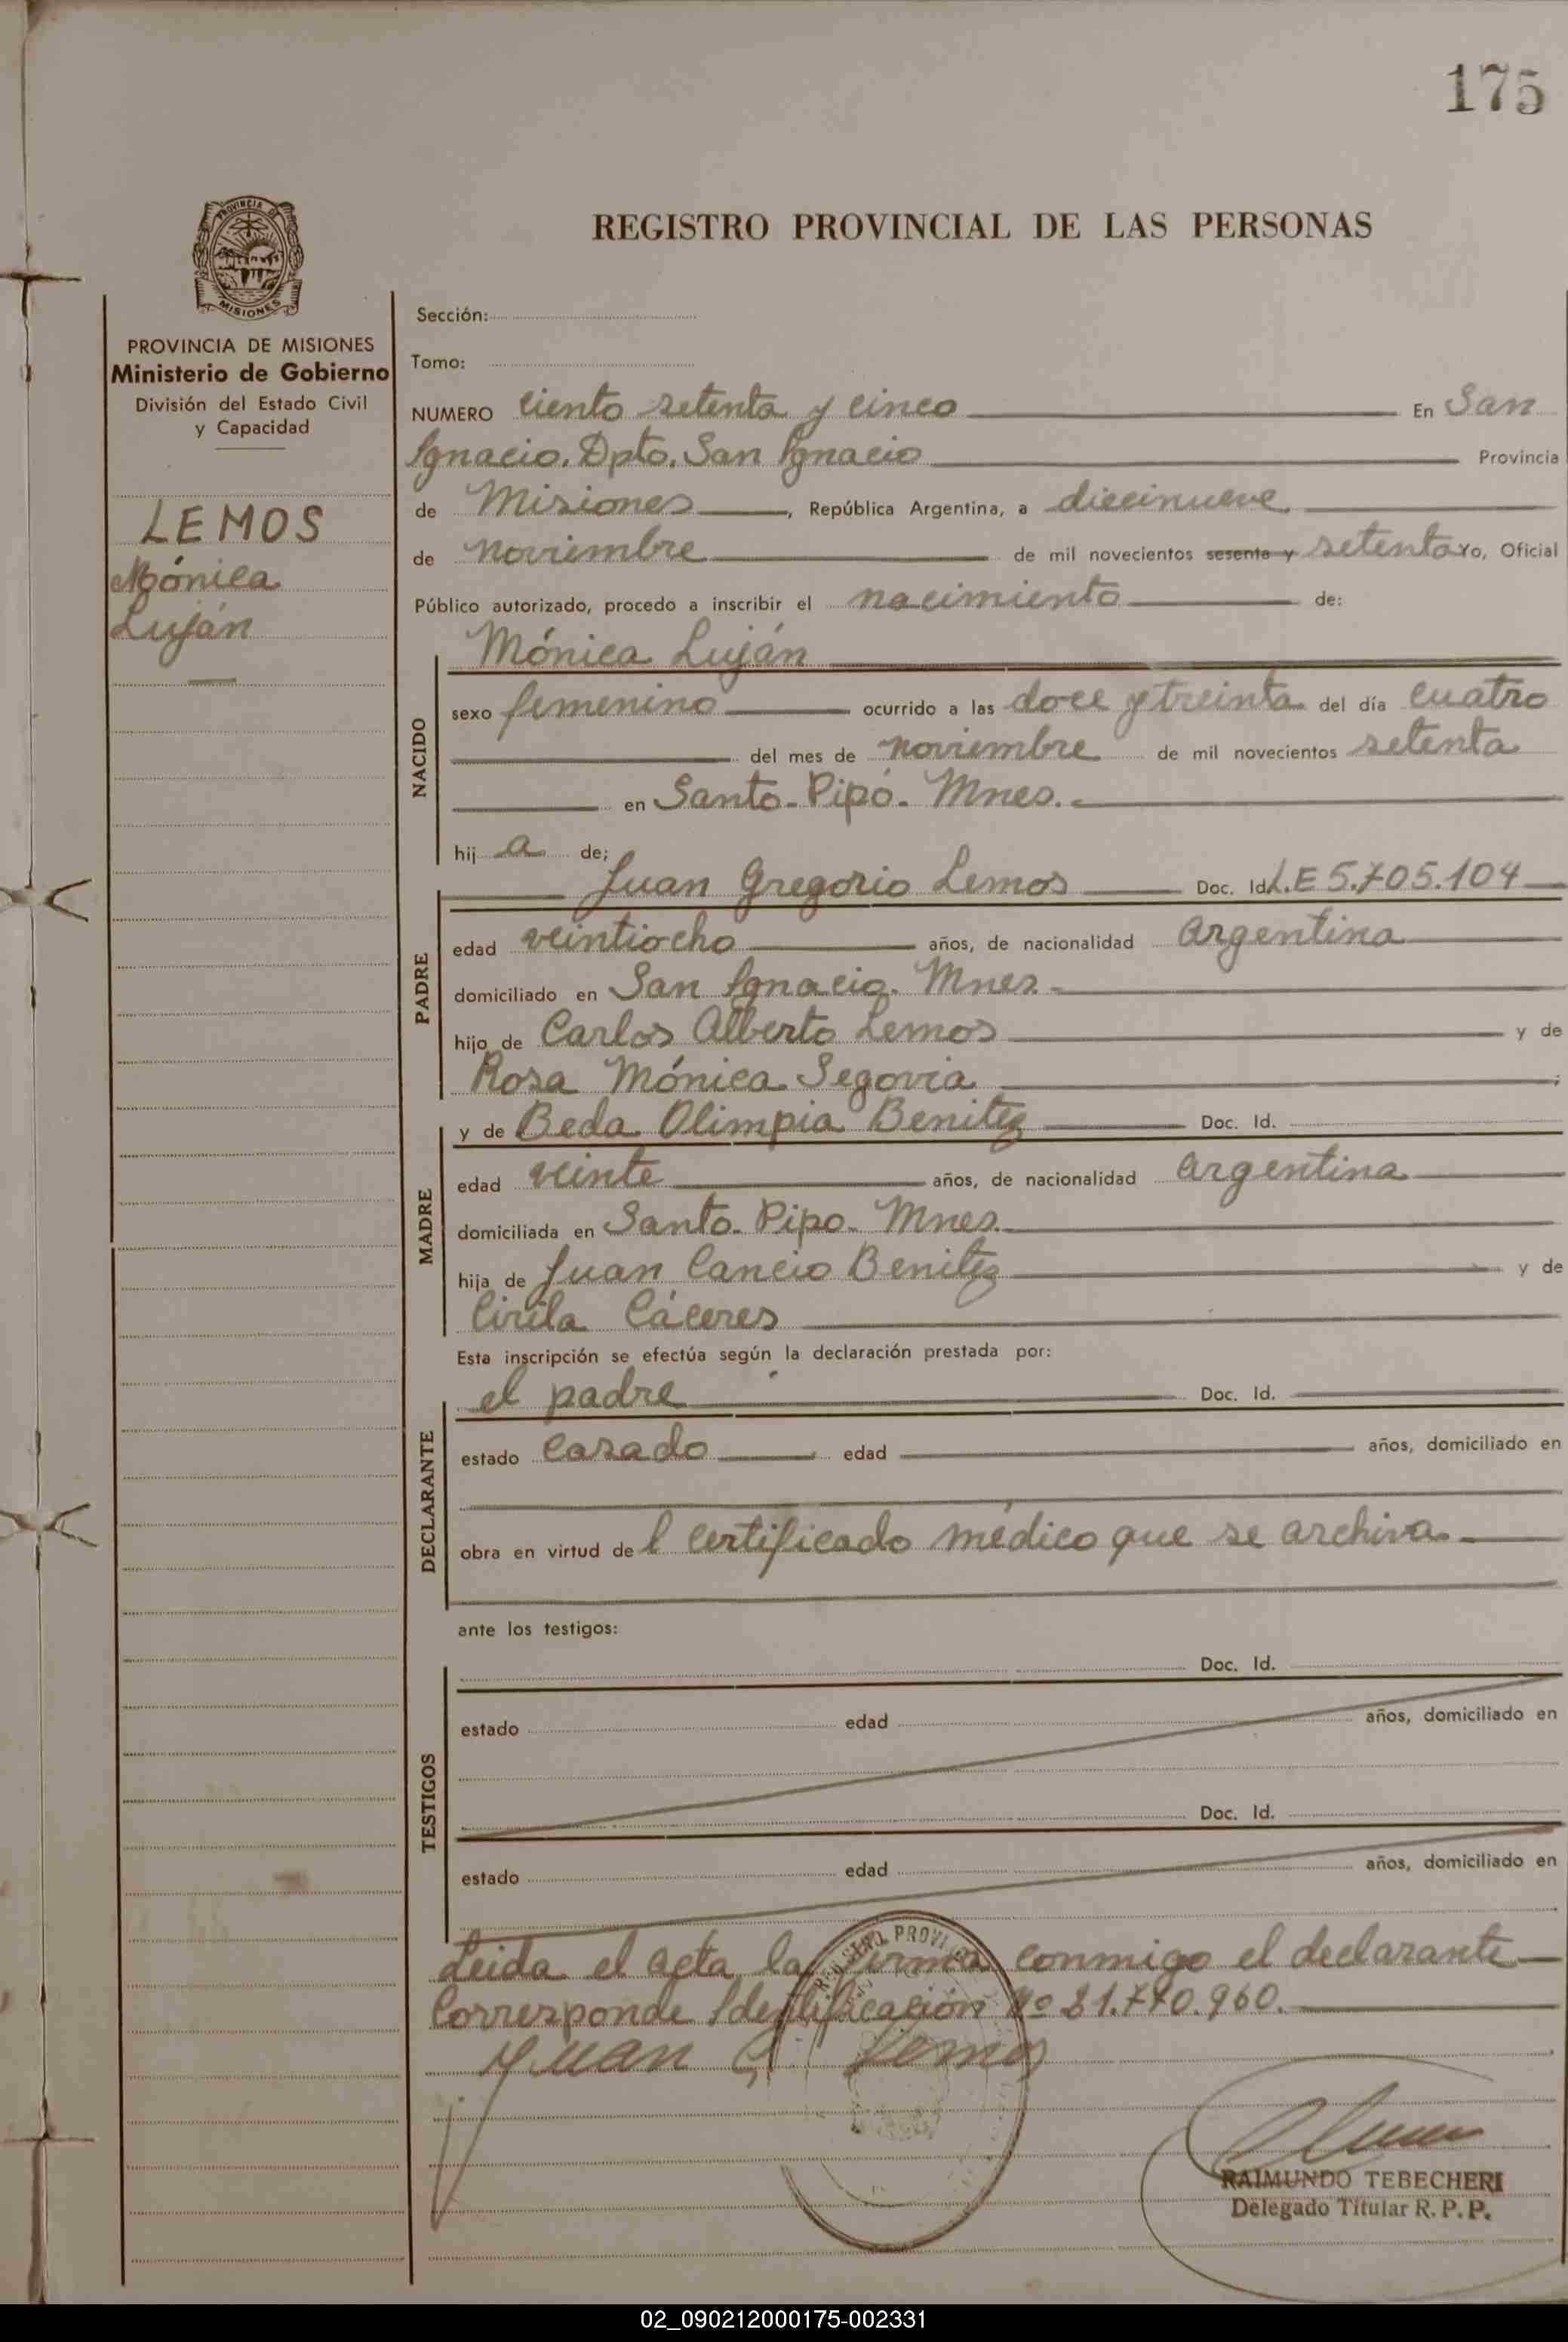 175
PROVINCIA DE
MISIONES
REGISTRO PROVINCIAL DE LAS PERSONAS
PROVINCIA DE MISIONES
Ministerio de Gobierno
División del Estado Civil
y Capacidad
LEMOS
Mónica
Luján
Sección:
Tomo:
NUMERO ciento setenta y cinco En San
Ignacio. Dpto. San Ignacio Provincia
de Misiones, República Argentina, a diecinueve
de noviembre de mil novecientos sesenta y setenta yo, Oficial
Público autorizado, procedo a inscribir el nacimiento de:
NACIDO
Mónica Luján
sexo femenino ocurrido a las doce y treinta del día cuatro
del mes de noviembre de mil novecientos setenta
en Santo-Pipó. Mnes.
hij a de;
PADRE
Juan Gregorio Lemos Doc. Id. L.E 5.705.104
edad veintiocho años, de nacionalidad Argentina
domiciliado en San Ignacio. Mnes.
hijo de Carlos Alberto Lemos y de
Rosa Mónica Segovia ;
MADRE
y de Beda Olimpia Benitez Doc. Id.
edad veinte años, de nacionalidad Argentina
domiciliada en Santo-Pipo-Mnes.
hija de Juan Cancio Benitez y de
Cirila Cáceres
Esta inscripción se efectúa según la declaración prestada por:
DECLARANTE
el padre Doc. Id.
estado Casado edad años, domiciliado en
obra en virtud de l certificado médico que se archiva.
ante los testigos:
TESTIGOS
Doc. Id.
estado edad años, domiciliado en
Doc. Id.
estado edad años, domiciliado en
Leida el acta, la firma conmigo el declarante
Corresponde Identificación Nº 21.770.960.
Juan G. Lemos
REGISTRO PROVI
RAIMUNDO TEBECHERI
Delegado Titular R. P. P.
02_090212000175-002331